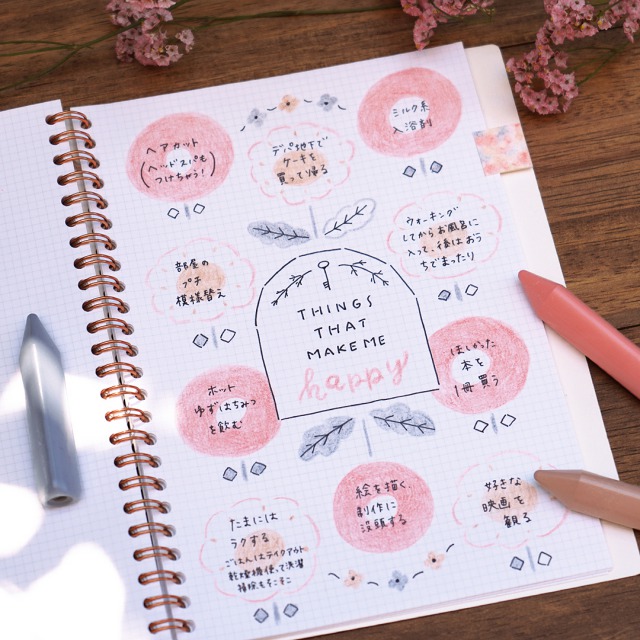 ヘアカット
(ヘッドスパも
つけちゃう!)
デパ地下で
ケーキを
買って帰る
ミルク系
入浴剤
部屋の
プチ
模様替え
ウォーキング
してからお風呂に
入って、後はおう
ちでまったり
THINGS
THAT
MAKE ME
happy
ホット
ゆずはちみつ
を飲む
ほしかった
本を
1冊買う
たまには
ラクする
ごはんはテイクアウト
乾燥機使って洗濯
掃除もそこそこ
絵を描く
制作に
没頭する
好きな
映画を
観る